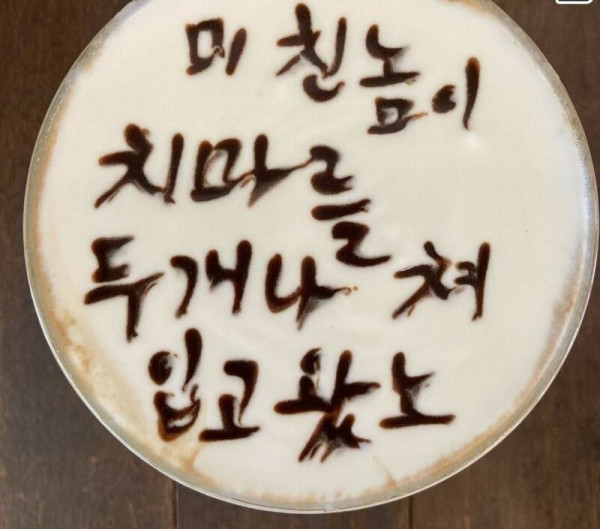 미친놈이
치마를
두개나 쳐
입고왔노